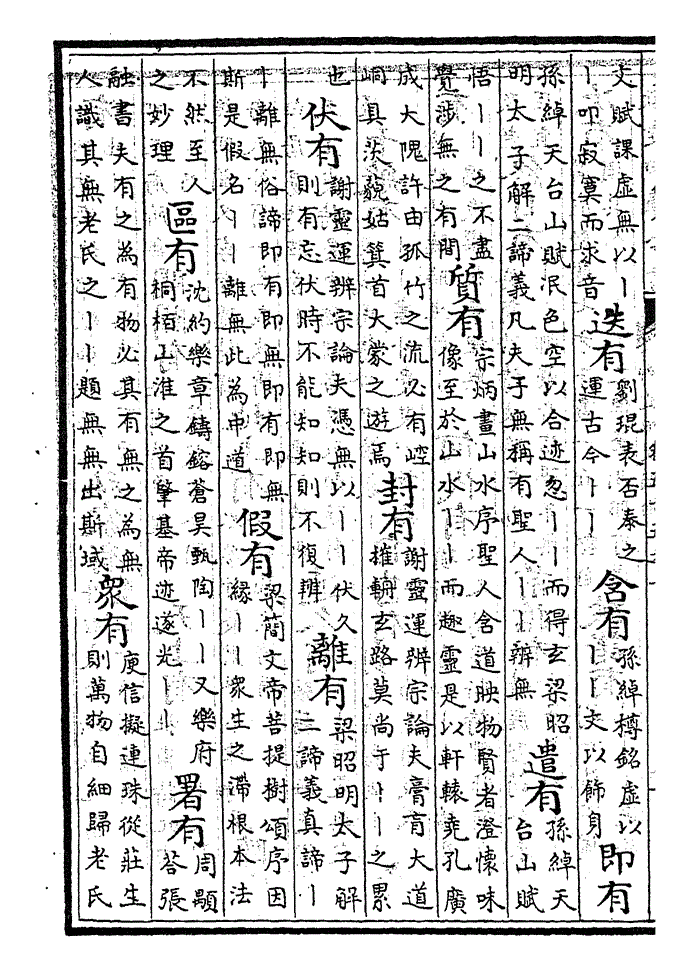 文賦課虛無以丨
丨叩寂寞而求音
迭有
劉琨表否泰之
運古今丨丨
含有
孫綽樽銘虛以
丨丨文以飾身
即有
孫綽天台山賦泯色空以合迹忽丨丨而得玄梁昭
明太子解二諦義凡夫于無稱有聖人丨丨辨無
遣有
孫綽天
台山賦
悟丨丨之不盡
覺涉無之有間
質有
宗炳畫山水序聖人含道映物賢者澄懷味
像至於山水丨丨而趣靈是以軒轅堯孔廣
成大隗許由孤竹之流必有崆
峒具茨藐姑箕首大蒙之遊焉
封有
謝靈運辨宗論夫膏肓大道
摧輈玄路莫尚于丨丨之累
也
伏有
謝靈運辨宗論夫憑無以丨丨伏久
則有忘伏時不能知知則不復辨
離有
梁昭明太子解
二諦義真諦丨
丨離無俗諦即有即無即有即無
斯是假名丨丨離無此為中道
假有
梁簡文帝菩提樹頌序因
緣丨丨衆生之滯根本法
不然至人
之妙理
區有
沈約樂章鑄鎔蒼昊甄陶丨丨又樂府
桐柏山淮之首肇基帝迹遂光丨丨
署有
周顒
答張
融書夫有之為有物必其有無之為無
人識其無老氏之丨丨題無無出斯域
衆有
庾信擬連珠從莊生
則萬物自細歸老氏